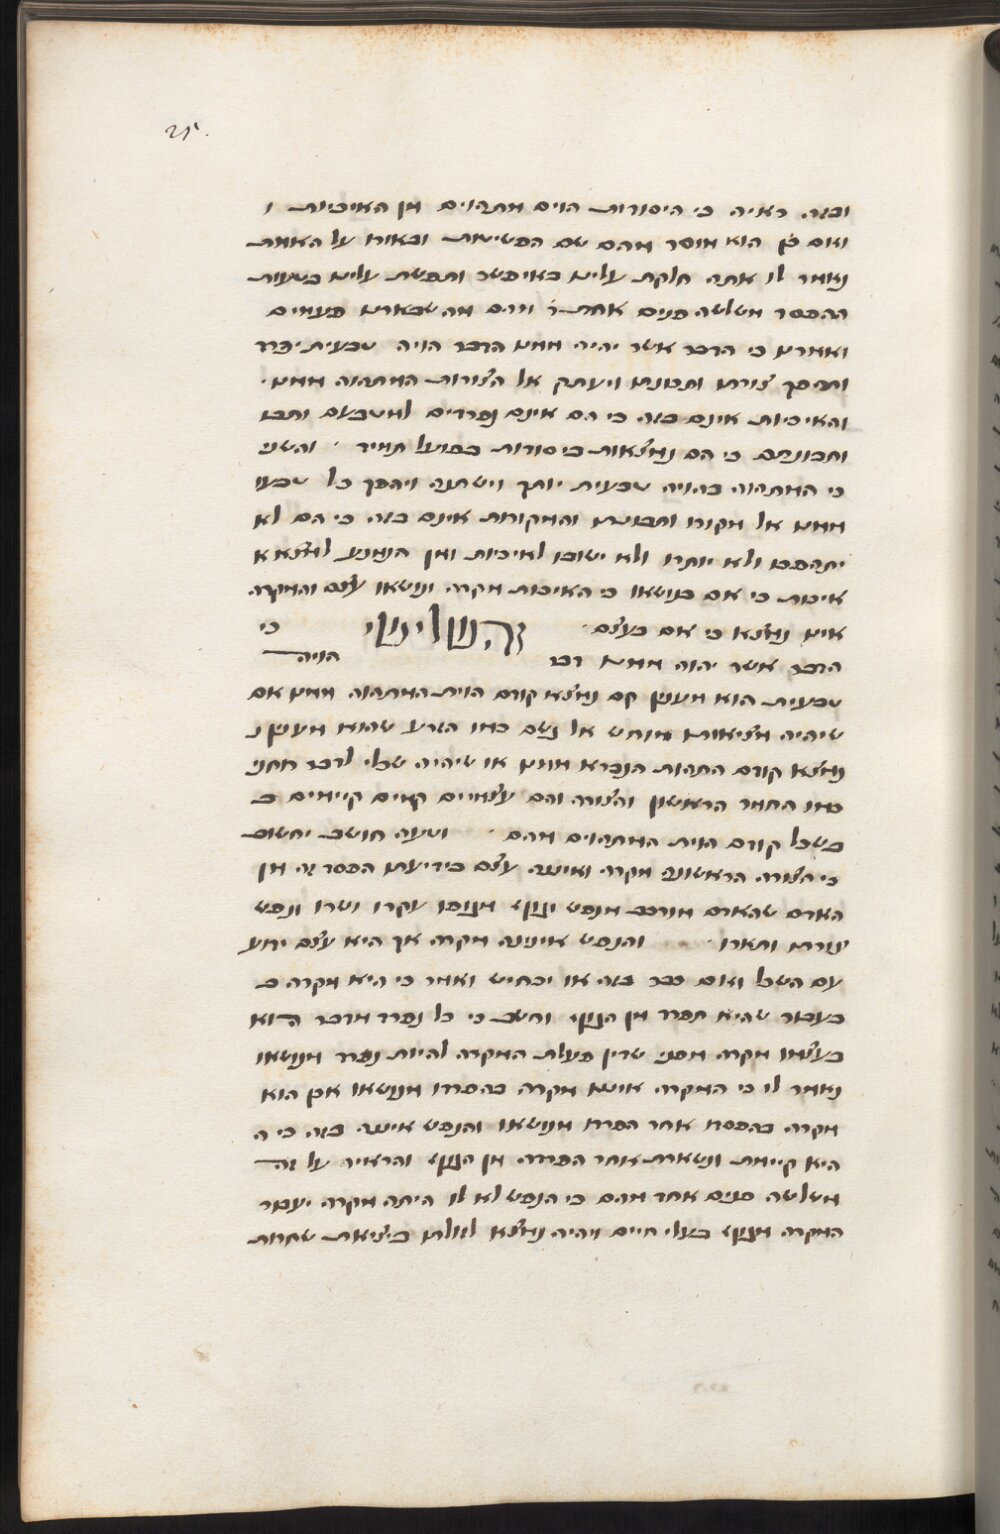 25.
ובזה ראיה כי היסודות הוים מתהוים מן האיכיות ו
ואם הוא מוסר מהם שם הפשיטות ובאורו על האמת
נאמר לו אתה חלקת עלינו באיפשר ותפשת עלינו בטענות
ההפסד משלשה פנים אחת מהם מה שבארנו פעמים
ואמרנו כי הדבר אשר יהיה ממנו הדבר הויה טבעית יפרד
ותהפך צורתו ותכונתו ויעתק אל הצורות המתהוה ממנו.
והאיכיות אינם כזה כי הם אינם נפרדים לטבעם
ותכונתם כי הם נמצאות ביסודות בפועל תמיד והשני
כי המתהוה בהויה טבעית יותך וישתנה ויהפך כל טבעו
ממנו אל מקורו ותכונתו והמקורות אינם כזה כי הם לא
יתהפכו ולא יותרו ולא ישובו לאיכיות ומן הנמנע למצוא
איכות כי אם בנושאו כי האיכות מקרה ונושאו עצם והמקרה
אינו נמצא כי אם בעצם. כי
הדבר אשר יהיה ממנו דבר הויה
טבעית הוא מענין קם נמצא קודם הוית המתהוה ממנו אם
שיהיה מציאותו מוחש אל גשם כמו הזרע שהוא מענין נ
נמצא קודם התהות הנברא ממנו או שיהיה שכלי לדבר רוחני
כמו החמר הראשון והצורה והם עצמיים קמים קיימים ב
בשכל קודם הוית המתהוים מהם וטעה חושב יחשוב
כי הצורה הראשונה מקרה ואיננה עצם בידיעתו הפסד זה מן
האדם שהאדם מורכב מנפש וגוף מגופו עקרו ושרו ונפש
צורתו ותארו והנפש איננה מקרה אך היא עצם ידוע
עם השכל ואם כבר בזה או יכחיש ואמר כי היא מקרה ב
בעבור שהיא תפרד מן הגוף וחשב כי כל נפרד מדבר הוא
בעצמו מקרה מפני שדין פעלת המקרה להיות נפרד מנושאו
נאמר לו כי המקרה איננו מקרה בהפרדו מנושאו אמנם הוא
מקרה בהפסדו אחר הפרדו מנושאו והנפש איננה כזה כי ה
היא קיימת ונשארת אחר הפרדה מן הגוף והראיה על זה
משלשה פנים אחד מהם כי הנפש לא לו היתה מקרה יעבור
המקרה מגוף בעלי חיים ויהיה נמצא לזולתו כיציאת שחרות